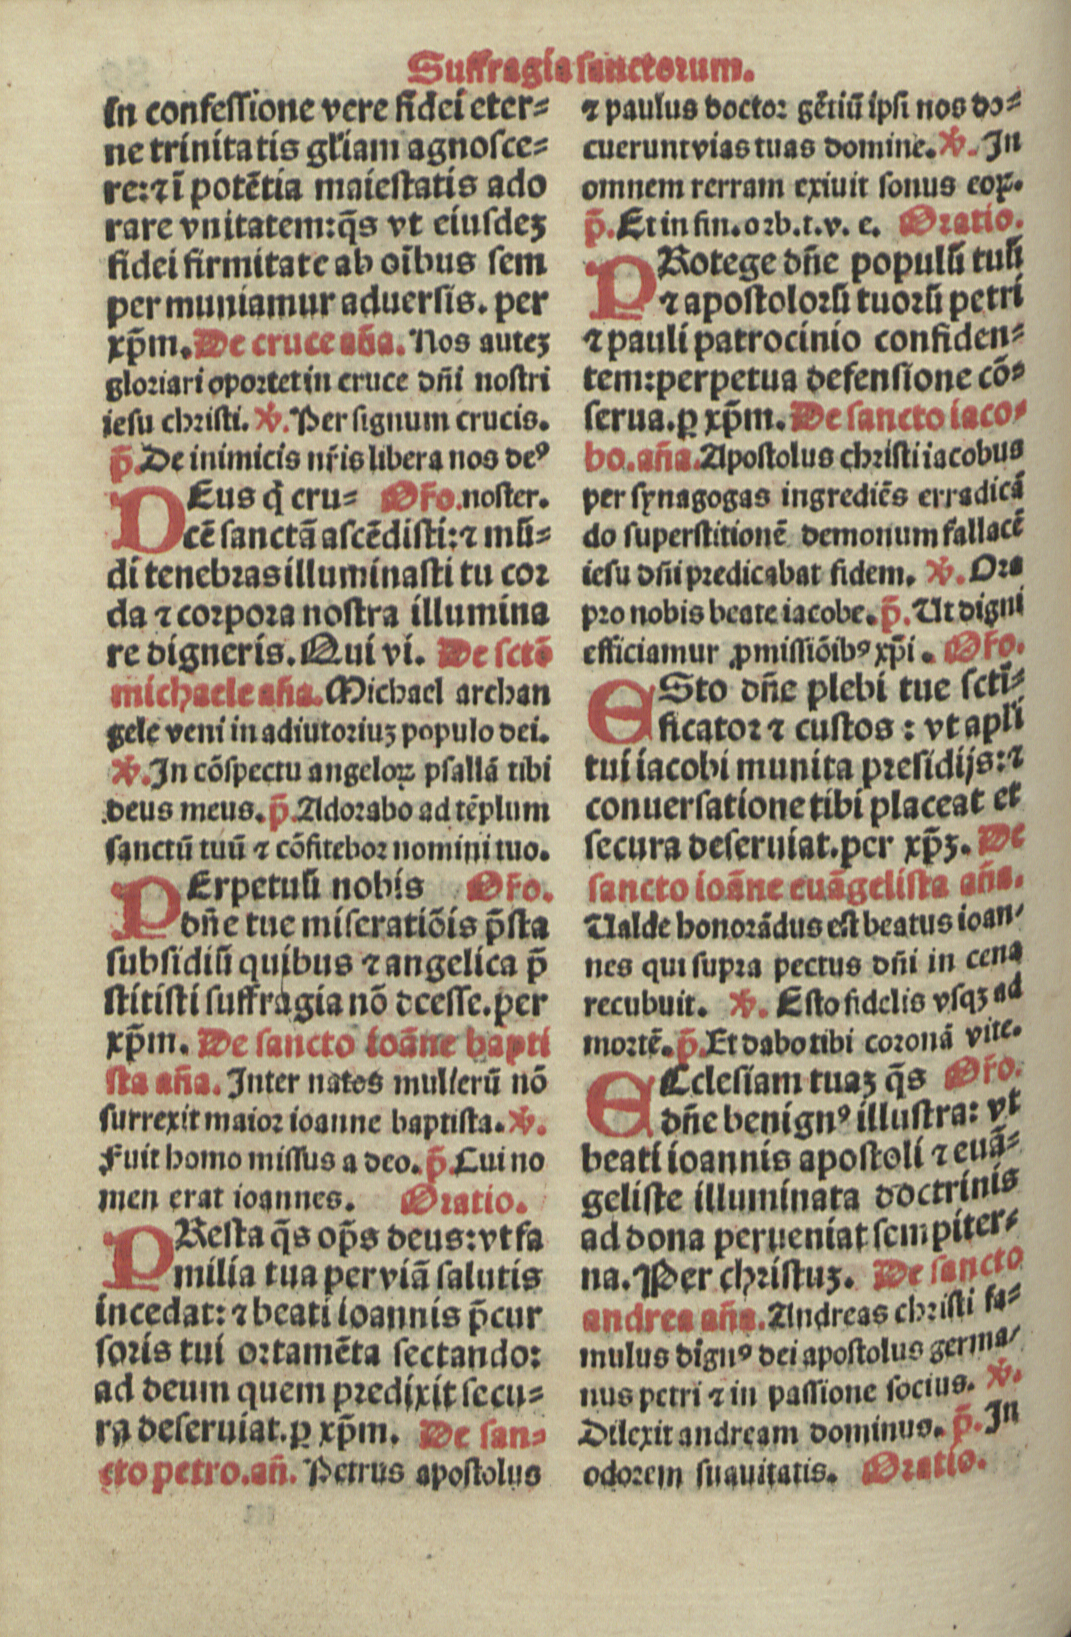 Suffragia sanctorum.
in confessione vere fidei eter-
ne trinitatis gl̄iam agnosce-
re: ⁊ ī potētia maiestatis ado
rare vnitatem: q̄s vt eiusdeȝ
fidei firmitate ab oībus sem
per muniamur aduersis. per
xp̄m. De cruce añа. Nos auteȝ
gloriari oportet in cruce dñi nostri
iesu christi. ℣. Per signum crucis.
p̄. De inimicis nr̄is libera nos deꝰ
DEus q̄ cru- Or̄o. noster.
cē sanctā ascēdisti: ⁊ mū-
di tenebras illuminasti tu cor
da ⁊ corpora nostra illumina
re digneris. Qui vi. De sctō
michaele aña. Michael archan
gele veni in adiutoriuȝ populo dei.
℣. In cōspectu angeloꝝ psallā tibi
deus meus. p̄. Adorabo ad tēplum
sanctū tuū ⁊ cōfitebor nomini tuo.
PErpetuū nobis Or̄o.
dñe tue miseratiōis p̄sta
subsidiū quibus ⁊ angelica p̄
stitisti suffragia nō deesse. per
xp̄m. De sancto ioāne bapti
sta aña. Inter natos mulierū nō
surrexit maior ioanne baptista. ℣.
Fuit homo missus a deo. p̄. Cui no
men erat ioannes. Oratio.
PResta q̄s op̄s deus: vt fa
milia tua per viā salutis
incedat: ⁊ beati ioannis p̄cur
soris tui ortamēta sectando:
ad deum quem predixit secu-
ra deseruiat. ꝑ xp̄m. De san-
cto petro. añ. Petrus apostolus
⁊ paulus doctor gētiū ipsi nos do-
cuerunt vias tuas domine. ℣. In
omnem rerram exiuit sonus eoꝝ.
p̄. Et in fin. orb. t. v. e. Oratio.
PRotege dñe populū tuū
⁊ apostolorū tuorū petri
⁊ pauli patrocinio confiden-
tem: perpetua defensione cō-
serua. ꝑ xp̄m. De sancto iaco-
bo. aña. Apostolus christi iacobus
per synagogas ingrediēs erradicā
do superstitionē demonum fallacē
iesu dñi predicabat fidem. ℣. Ora
pro nobis beate iacobe. p̄. Ut digni
efficiamur ꝓmissiōibꝰ xp̄i. Or̄o.
ESto dñe plebi tue sctī-
ficator ⁊ custos: vt apl̄i
tui iacobi munita presidijs: ⁊
conuersatione tibi placeat et
secura deseruiat. per xp̄ȝ. De
sancto ioāne euāgelista aña.
Ualde honorādus est beatus ioan-
nes qui supra pectus dñi in cena
recubuit. ℣. Esto fidelis vsqȝ ad
mortē. p̄. Et dabo tibi coronā vite.
ECclesiam tuaȝ q̄s Or̄o.
dñe benignꝰ illustra: vt
beati ioannis apostoli ⁊ euā-
geliste illuminata doctrinis
ad dona perueniat sempiter-
na. Per christuȝ. De sancto
andrea aña. Andreas christi fa-
mulus dignꝰ dei apostolus germa-
nus petri ⁊ in passione socius. ℣.
Dilexit andream dominus. p̄. In
odorem suauitatis. Oratio.